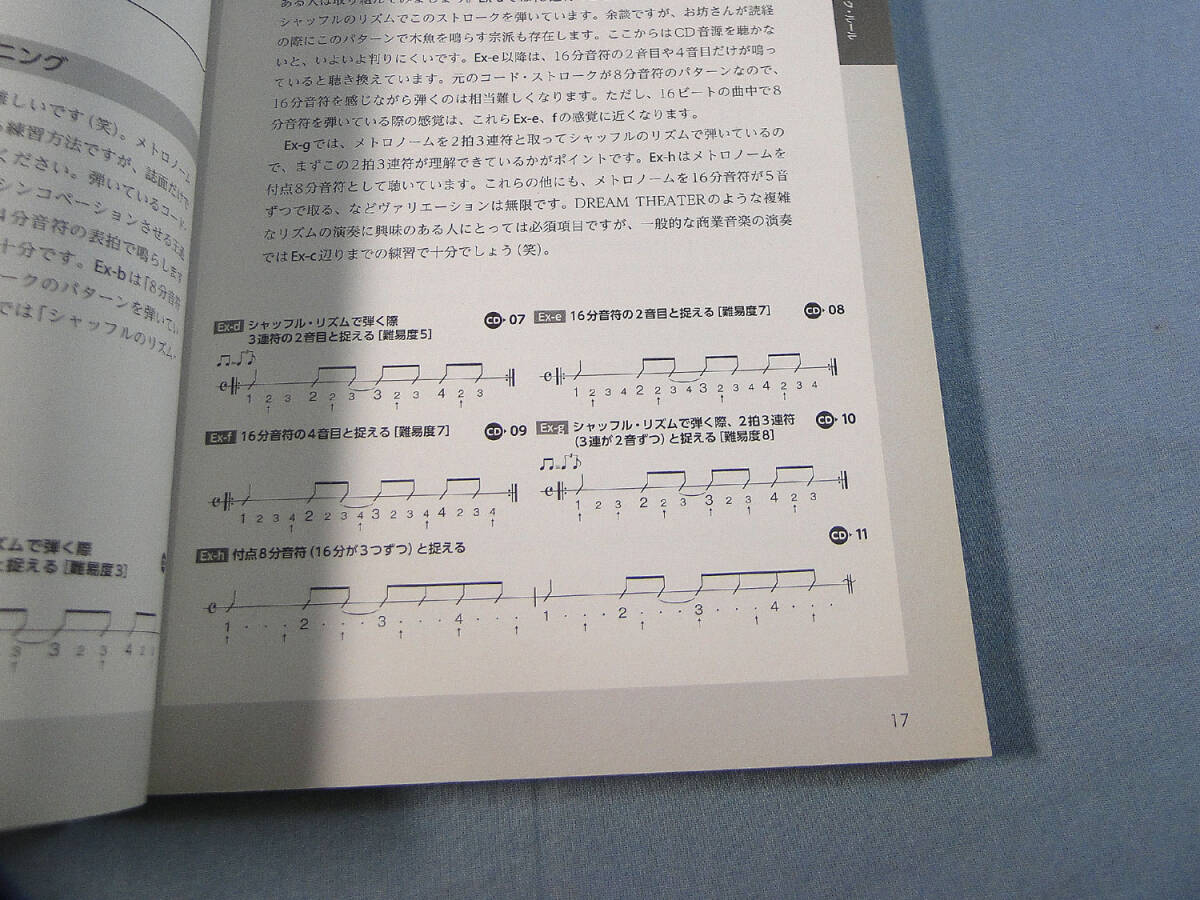 ク・ルール
シャッフルのリズムでこのストロークを弾いています。余談ですが、お坊さんが読経
の際にこのパターンで木魚を鳴らす宗派も存在します。ここからはCD音源を聴かな
いと、いよいよ判りにくいです。Ex-e以降は、16分音符の2音目や4音目だけが鳴っ
ていると聴き換えています。元のコード・ストロークが8分音符のパターンなので、
16分音符を感じながら弾くのは相当難しくなります。ただし、16ビートの曲中で8
分音符を弾いている際の感覚は、これらEx-e、fの感覚に近くなります。
Ex-gでは、メトロノームを2拍3連符と取ってシャッフルのリズムで弾いているの
で、まずこの2拍3連符が理解できているかがポイントです。Ex-hはメトロノームを
付点8分音符として聴いています。これらの他にも、メトロノームを16分音符が5音
ずつで取る、などヴァリエーションは無限です。DREAM THEATERのような複雑
なリズムの演奏に興味のある人にとっては必須項目ですが、一般的な商業音楽の演奏
ではEx-c辺りまでの練習で十分でしょう（笑）。
ニング
難しいです（笑）。メトロノーム
練習方法ですが、誌面だけで
ください。弾いているコード、
シンコペーションさせる
4分音符の表拍で鳴らします
十分です。Ex-bは「8分音符
ークのパターンを弾いてい
では「シャッフルのリズム・
ズムで弾く際
と捉える［難易度3］
3 3 2 3 4 2
Ex-d シャッフル・リズムで弾く際
3連符の2音目と捉える［難易度5］
CD▸07
1 2 3 2 2 3 3 2 3 4 2 3
Ex-e 16分音符の2音目と捉える［難易度7］
CD▸08
1 2 3 4 2 2 3 4 3 2 3 4 4 2 3 4
Ex-f 16分音符の4音目と捉える［難易度7］
CD▸09
1 2 3 4 2 2 3 4 3 2 3 4 4 2 3 4
Ex-g シャッフル・リズムで弾く際、2拍3連符
（3連が2音ずつ）と捉える［難易度8］
CD▸10
1 2 3 2 2 3 3 2 3 4 2 3
Ex-h 付点8分音符（16分が3つずつ）と捉える
CD▸11
1 · · · 2 · · · 3 · · · 4 · · · 1 · · · 2 · · · 3 · · · 4 · · ·
17